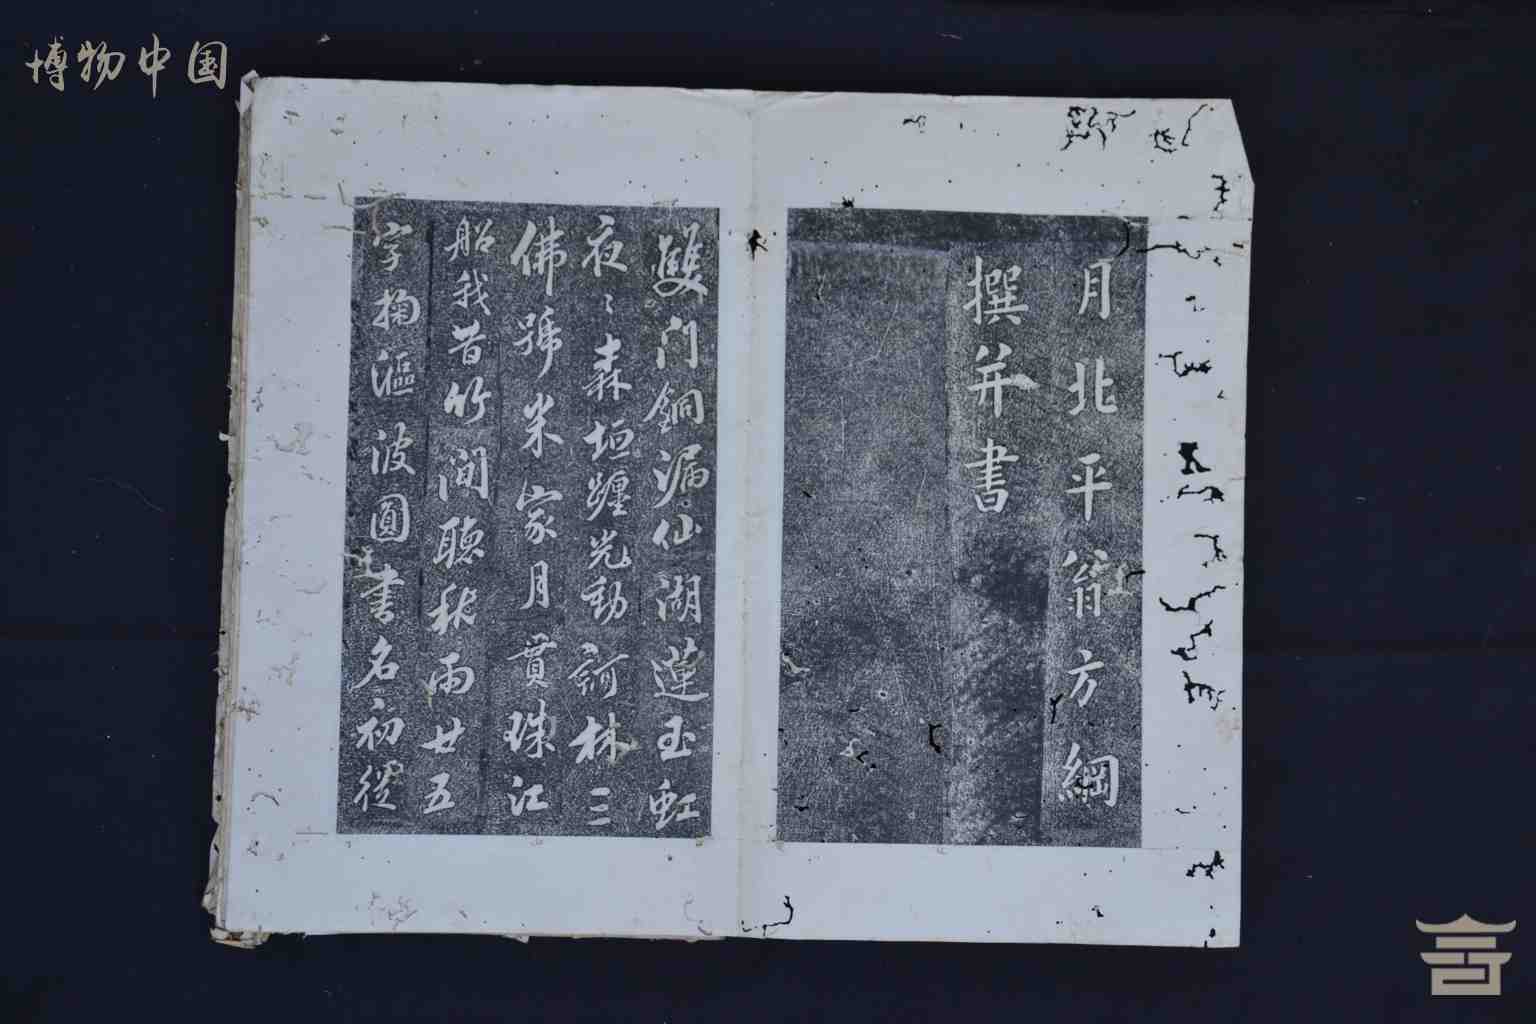 博物中国
月北平翁方綱
撰并書
雙門銅漏仙湖蓮玉虹
夜〻森垣躔光動訶林三
佛號米家月貫珠江
船我昔竹間聽秋雨廿五
字掬漚波圓書名初從